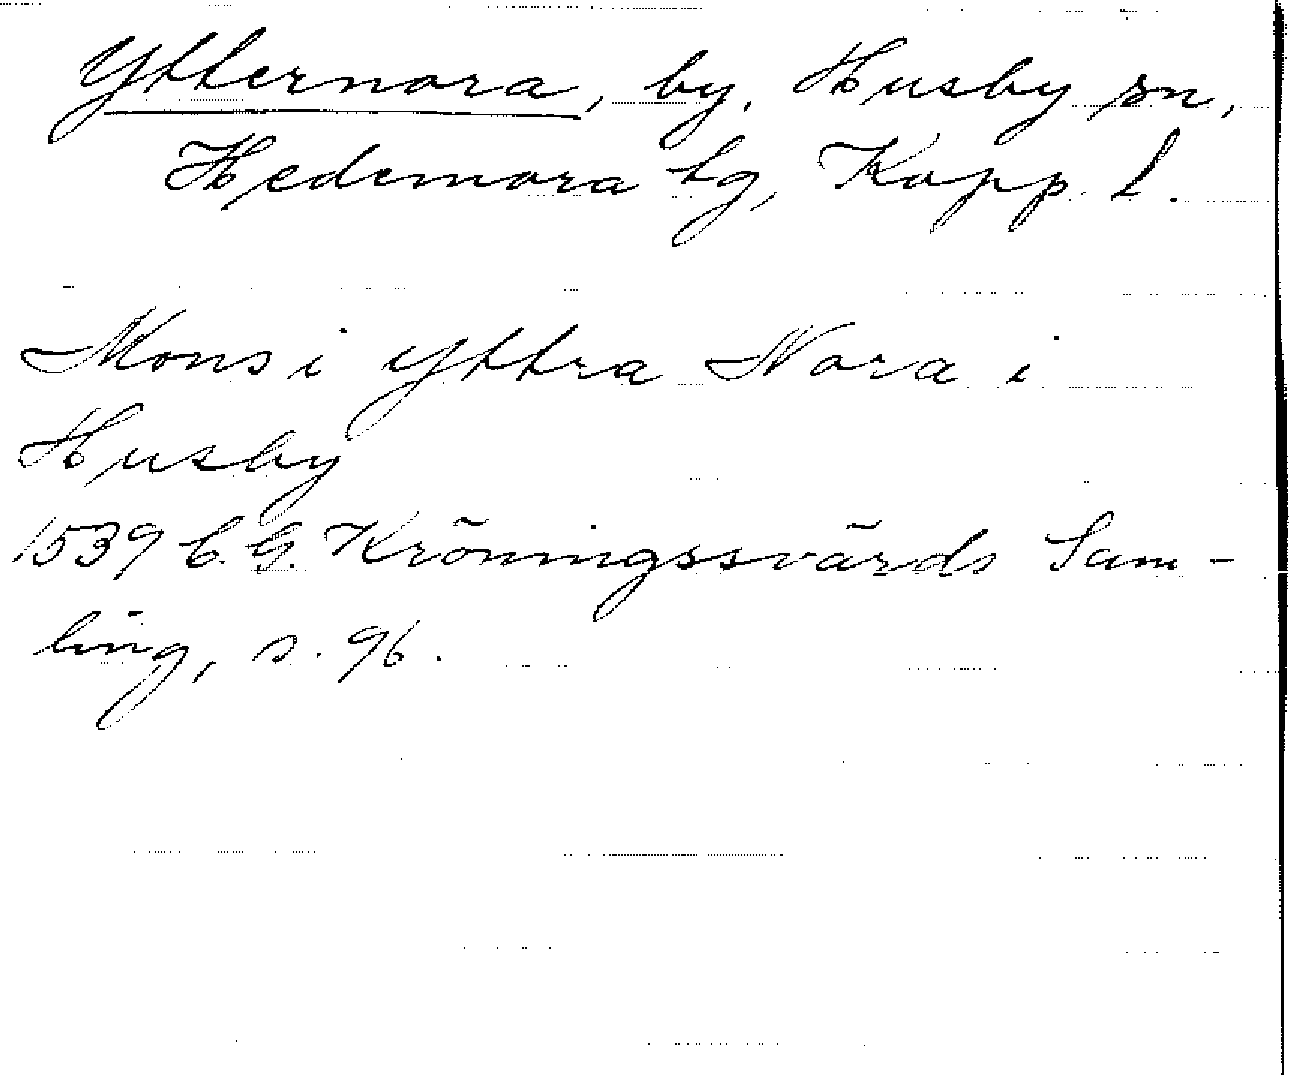 Ytternora, by, Husby sn,
Hedemora tg, Kopp. l.
Mons i Yttra Nora i
Husby
1539 C. G. Kröningssvärds Sam-
ling, s. 96.